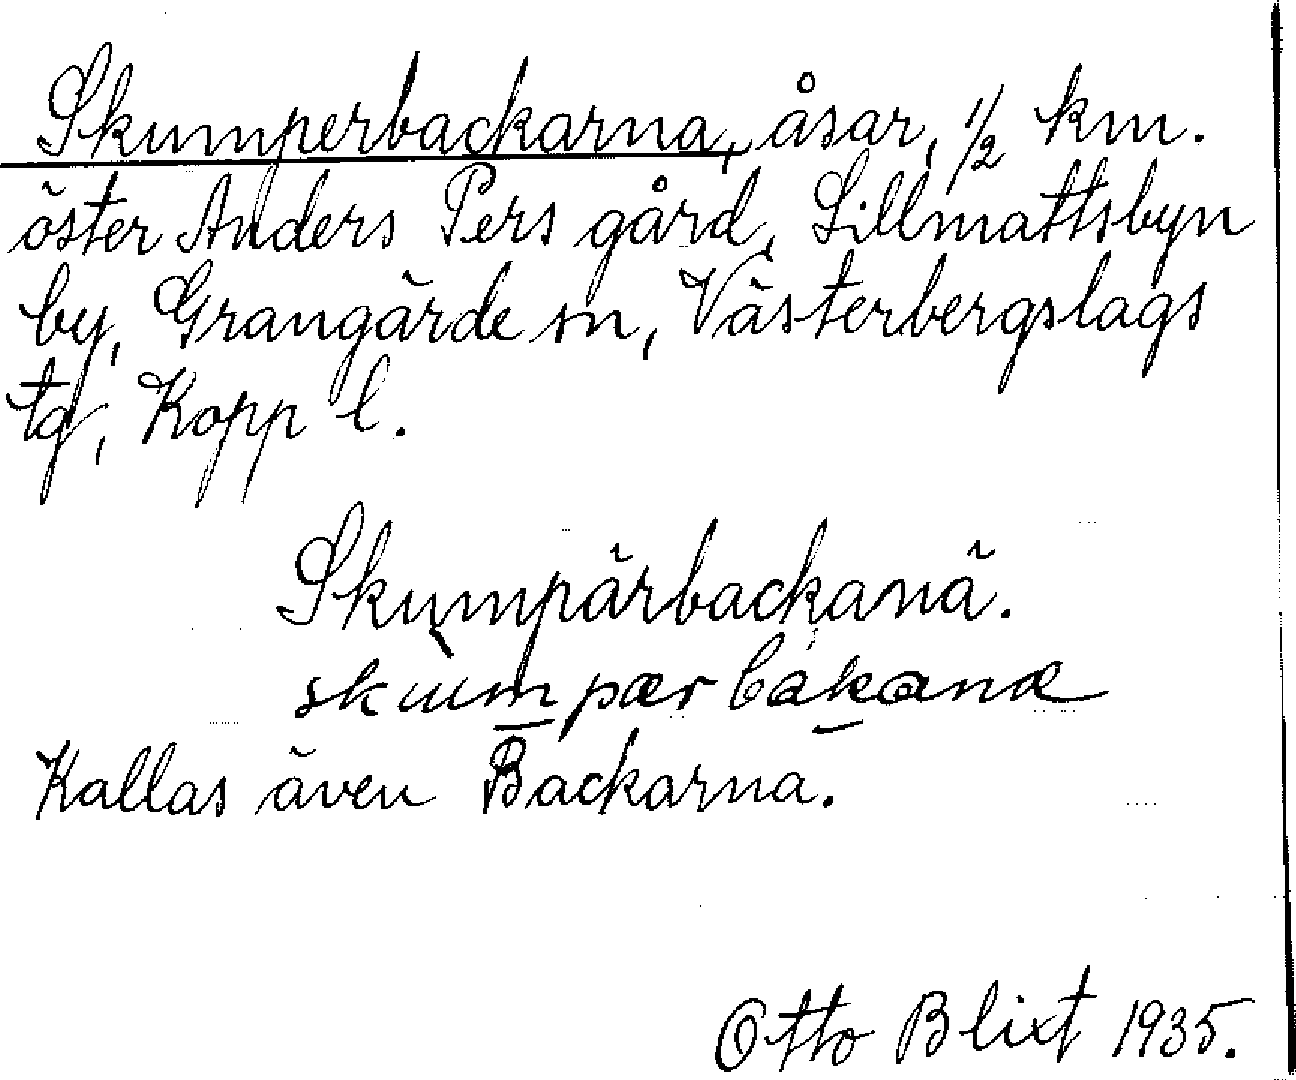 Skumperbackarna, åsar, 1/2 km.
öster Anders Pers gård, Lillmattsbyn
by, Grangärde sn, Västerbergslags
tg, Kopp l.
Skumpärbackanä.
skumpærbakanæ
Kallas även Backarna.
Otto Blixt 1935.